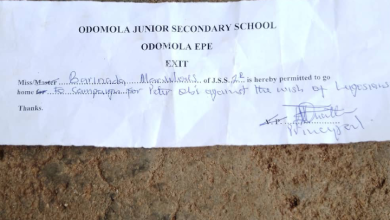 ODOMOLA JUNIOR SECONDARY SCHOOL
ODOMOLA EPE
EXIT
Miss/Master Barinada of J.S.S. 2E is hereby permitted to go
home to campaign for Peter obi against the wish of Lagosians
Thanks.
V.P.
Principal